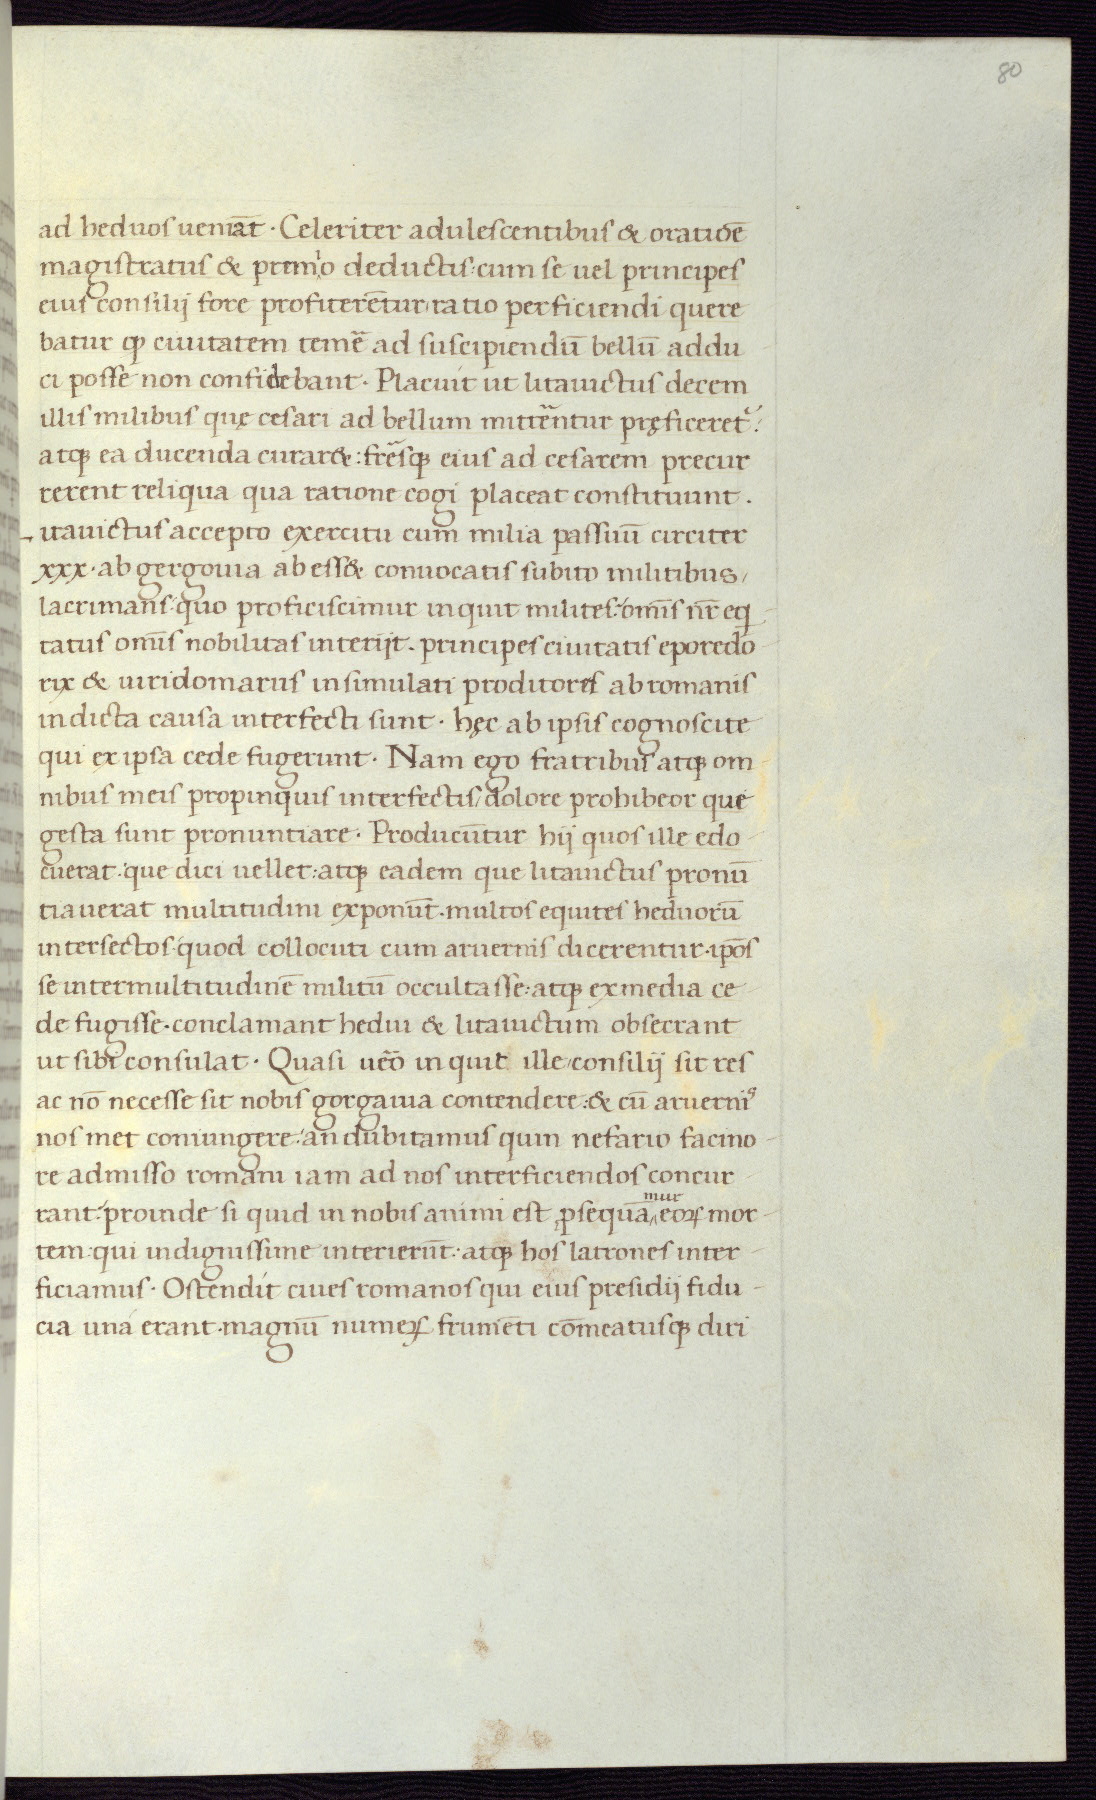 80
ad heduos ueniāt · Celeriter adulescentibus & oratiōe
magistratus & premio deductis : cum se uel principes
eius consilij fore profiterētur ratio perficiendi quere
batur ꝙ ciuitatem temē ad suscipiendū bellū addu
ci posse non confidebant · Placuit ut litauictus decem
illis milibus quę cesari ad bellum mitterentur pręficeret᷑ :
atqꝫ ea ducenda curar& : fr̄esqꝫ eius ad cesarem precur
rerent reliqua qua ratione cogi placeat constituunt .
itauictus accepto exercitu cum milia passuū circiter
xxx · ab gergouia abess& conuocatis subito militibus /
lacrimans : quo proficiscimur inquit milites : om̄is nr̄ eq̄
tatus om̄is nobilitas interijt . principes ciuitatis eporedo
rix & uiridomarus insimulati proditores ab romanis
indicta causa interfecti sunt · hęc ab ipsis cognoscite
qui ex ipsa cede fugerunt · Nam ego fratribus atqꝫ om
nibus meis propinquis interfectis / dolore prohibeor que
gesta sunt pronuntiare · Producūtur hij quos ille edo
cuerat : que dici uellet : atqꝫ eadem que litauictus pronū
tiauerat multitudini exponūt · multos equites heduorū
intersectos · quod collocuti cum aruernis dicerentur · ip̄os
se inter multitudinē militū occultasse : atqꝫ ex media ce
de fugisse · conclamant hedui & litauictum obsecrant
ut sibi consulat · Quasi uēo inquit ille / consilij sit res
ac nō necesse sit nobis gorgauia contendere : & cū aruernis
nosmet coniungere : an dubitamus quin nefario facino
re admisso romani iam ad nos interficiendos concur
rant : proinde si quid in nobis animi est ꝑsequāmur eoꝝ mor
tem : qui indignissime interierūt · atqꝫ hos latrones inter
ficiamus · Ostendit ciues romanos qui eius presidij fidu
cia una erant · magnū numeꝝ frumēti cōmeatusqꝫ diri